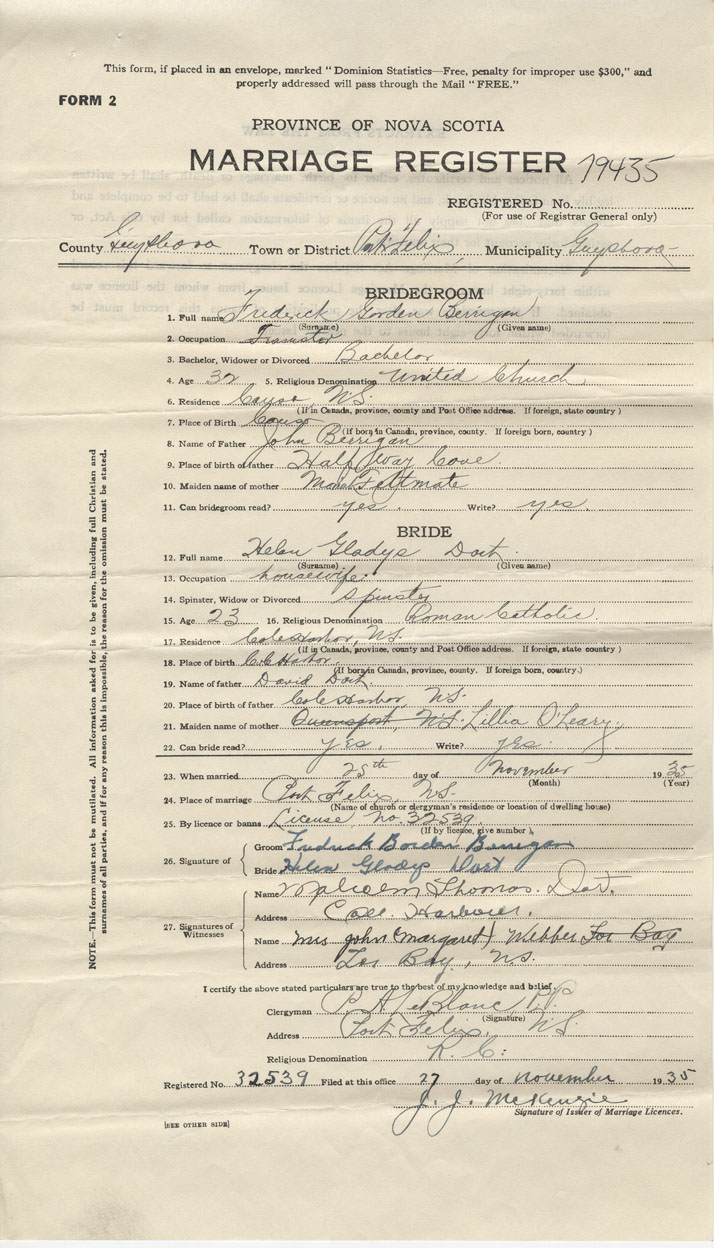 This form, if placed in an envelope, marked “Dominion Statistics—Free, penalty for improper use $300,” and
properly addressed will pass through the Mail “FREE.”
FORM 2
PROVINCE OF NOVA SCOTIA
MARRIAGE REGISTER 19435
REGISTERED No.
(For use of Registrar General only)
County Guysboro Town or District Port Felix Municipality Guysboro
BRIDEGROOM
1. Full name Fredrick Gorden Berrigan
(Surname) (Given name)
2. Occupation
3. Bachelor, Widower or Divorced Bachelor
4. Age 32 5. Religious Denomination United Church
6. Residence Canso, N.S.
(If in Canada, province, county and Post Office address. If foreign, state country)
7. Place of Birth Canso
(If born in Canada, province, county. If foreign born, country)
8. Name of Father John Berrigan
9. Place of birth of father Half Way Cove
10. Maiden name of mother
11. Can bridegroom read? yes. Write? yes
BRIDE
12. Full name Helen Gladys Dort
(Surname) (Given name)
13. Occupation housewife
14. Spinster, Widow or Divorced Spinster
15. Age 23 16. Religious Denomination Roman Catholic
17. Residence Coles Harbor, N.S.
(If in Canada, province, county and Post Office address. If foreign, state country)
18. Place of birth Harbor
(If born in Canada, province, county. If foreign born, country.)
19. Name of father David Dort
20. Place of birth of father Coles Harbor, N.S.
21. Maiden name of mother Queensport, N.S. Lillia O'Leary
22. Can bride read? yes. Write? yes.
23. When married 25th day of November 1935
(Month) (Year)
24. Place of marriage Port Felix, N.S.
(Name of church or clergyman's residence or location of dwelling house)
25. By licence or banns License, No. 32539
(If by licence, give number)
26. Signature of
Groom Fredrick Borden Berrigan
Bride Helen Gladys Dort
27. Signatures of
Witnesses
Name Malcolm Thomas Dort.
Address Cole Harbour.
Name Mrs john (Margaret) Webber For Bay
Address Tor Bay, N.S.
I certify the above stated particulars are true to the best of my knowledge and belief.
Clergyman P. A. LeBlanc, P.P.
(Signature)
Address Port Felix, N.S.
Religious Denomination R. C.
Registered No. 32539 Filed at this office 27 day of November 1935
J. J. McKenzie
Signature of Issuer of Marriage Licences.
[SEE OTHER SIDE]
NOTE.—This form must not be mutilated. All information asked for is to be given, including full Christian and
surnames of all parties, and if for any reason this is impossible, the reason for the omission must be stated.